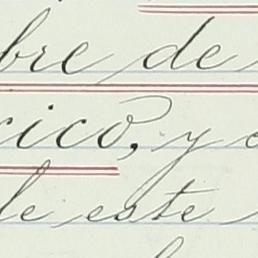 bre de
rico, y
le este